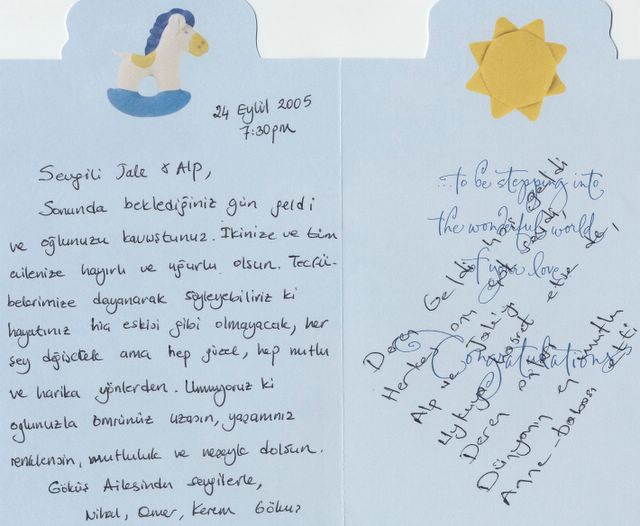 24 Eylül 2005
7:30pm
Sevgili Jale & Alp,
Sonunda beklediğiniz gün geldi
ve oğlunuzu kavuştunuz. İkinize ve tüm
ailenize hayırlı ve uğurlu olsun. Tecrü-
belerimize dayanarak söyleyebiliriz ki
hayatınız hiç eskisi gibi olmayacak, her
şey değişecek ama hep güzel, hep mutlu
ve harika yönlerden. Umuyoruz ki
oğlunuzla ömrünüz uzasın, yaşamınız
renklensin, mutluluk ve neşeyle dolsun.
Göküş Ailesinden sevgilerle,
Nihal, Omer, Kerem Göküş
...to be stepping into
the wonderful world
of your love.
Congratulations
Deren Geldi hoş geldi
Herkes onu çok sevdi,
Alp ve Jale'yi
Uykuya hasret etse de,
Deren onları
Dünyanın en mutlu
Anne-babası etti